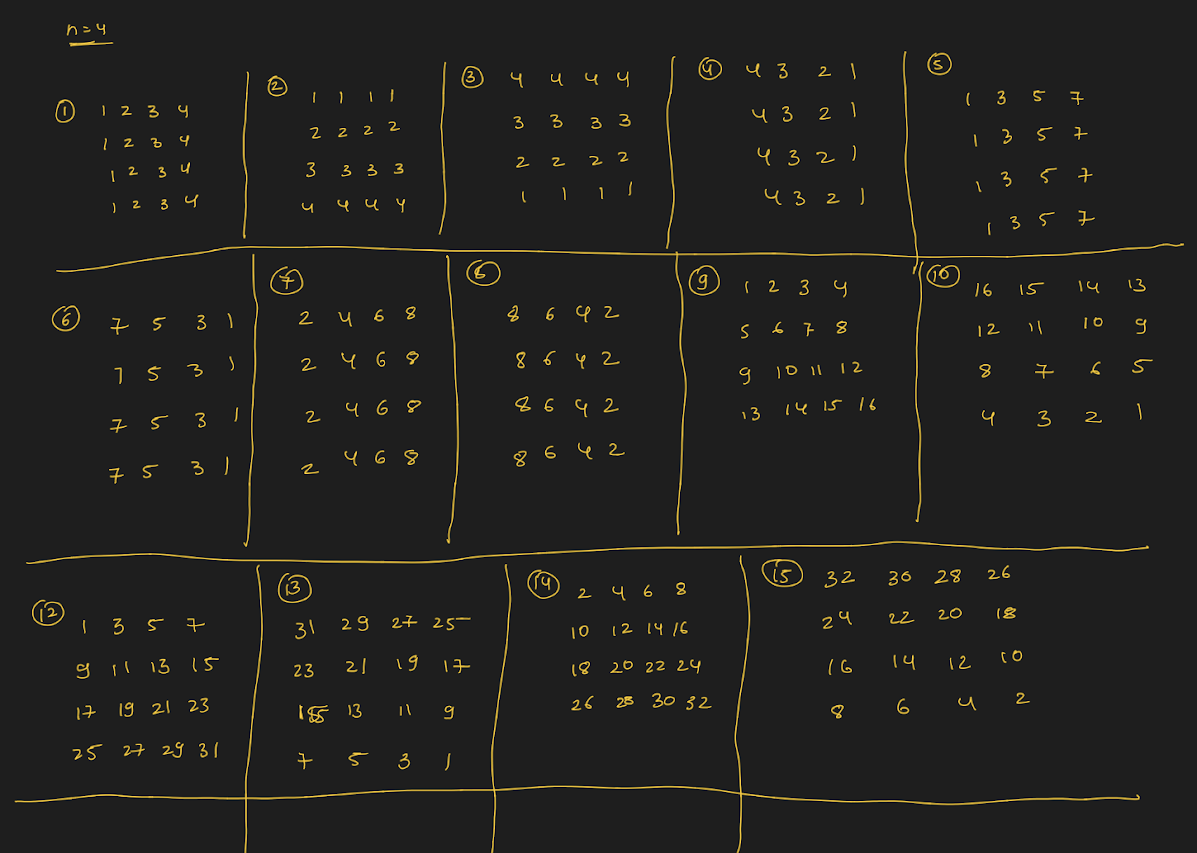 n=4
① 1 2 3 4
1 2 3 4
1 2 3 4
1 2 3 4
② 1 1 1 1
2 2 2 2
3 3 3 3
4 4 4 4
③ 4 4 4 4
3 3 3 3
2 2 2 2
1 1 1 1
④ 4 3 2 1
4 3 2 1
4 3 2 1
4 3 2 1
⑤
1 3 5 7
1 3 5 7
1 3 5 7
1 3 5 7
⑥ 7 5 3 1
7 5 3 1
7 5 3 1
7 5 3 1
⑦
2 4 6 8
2 4 6 8
2 4 6 8
2 4 6 8
⑧
8 6 4 2
8 6 4 2
8 6 4 2
8 6 4 2
⑨ 1 2 3 4
5 6 7 8
9 10 11 12
13 14 15 16
⑩ 16 15 14 13
12 11 10 9
8 7 6 5
4 3 2 1
⑫ 1 3 5 7
9 11 13 15
17 19 21 23
25 27 29 31
⑬
31 29 27 25
23 21 19 17
15 13 11 9
7 5 3 1
⑭ 2 4 6 8
10 12 14 16
18 20 22 24
26 28 30 32
⑮ 32 30 28 26
24 22 20 18
16 14 12 10
8 6 4 2